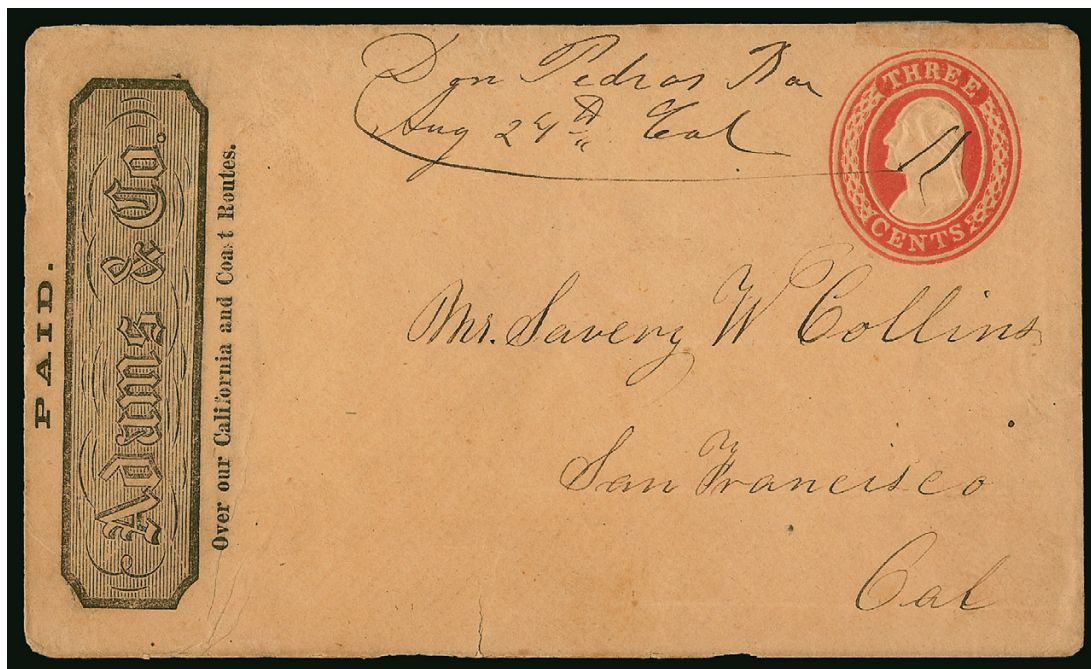 PAID.
Adams & Co.
Over our California and Coast Routes.
Don Pedros Bar
Aug 24th Cal
THREE
CENTS
Mr. Savery W Collins
San Francisco
Cal